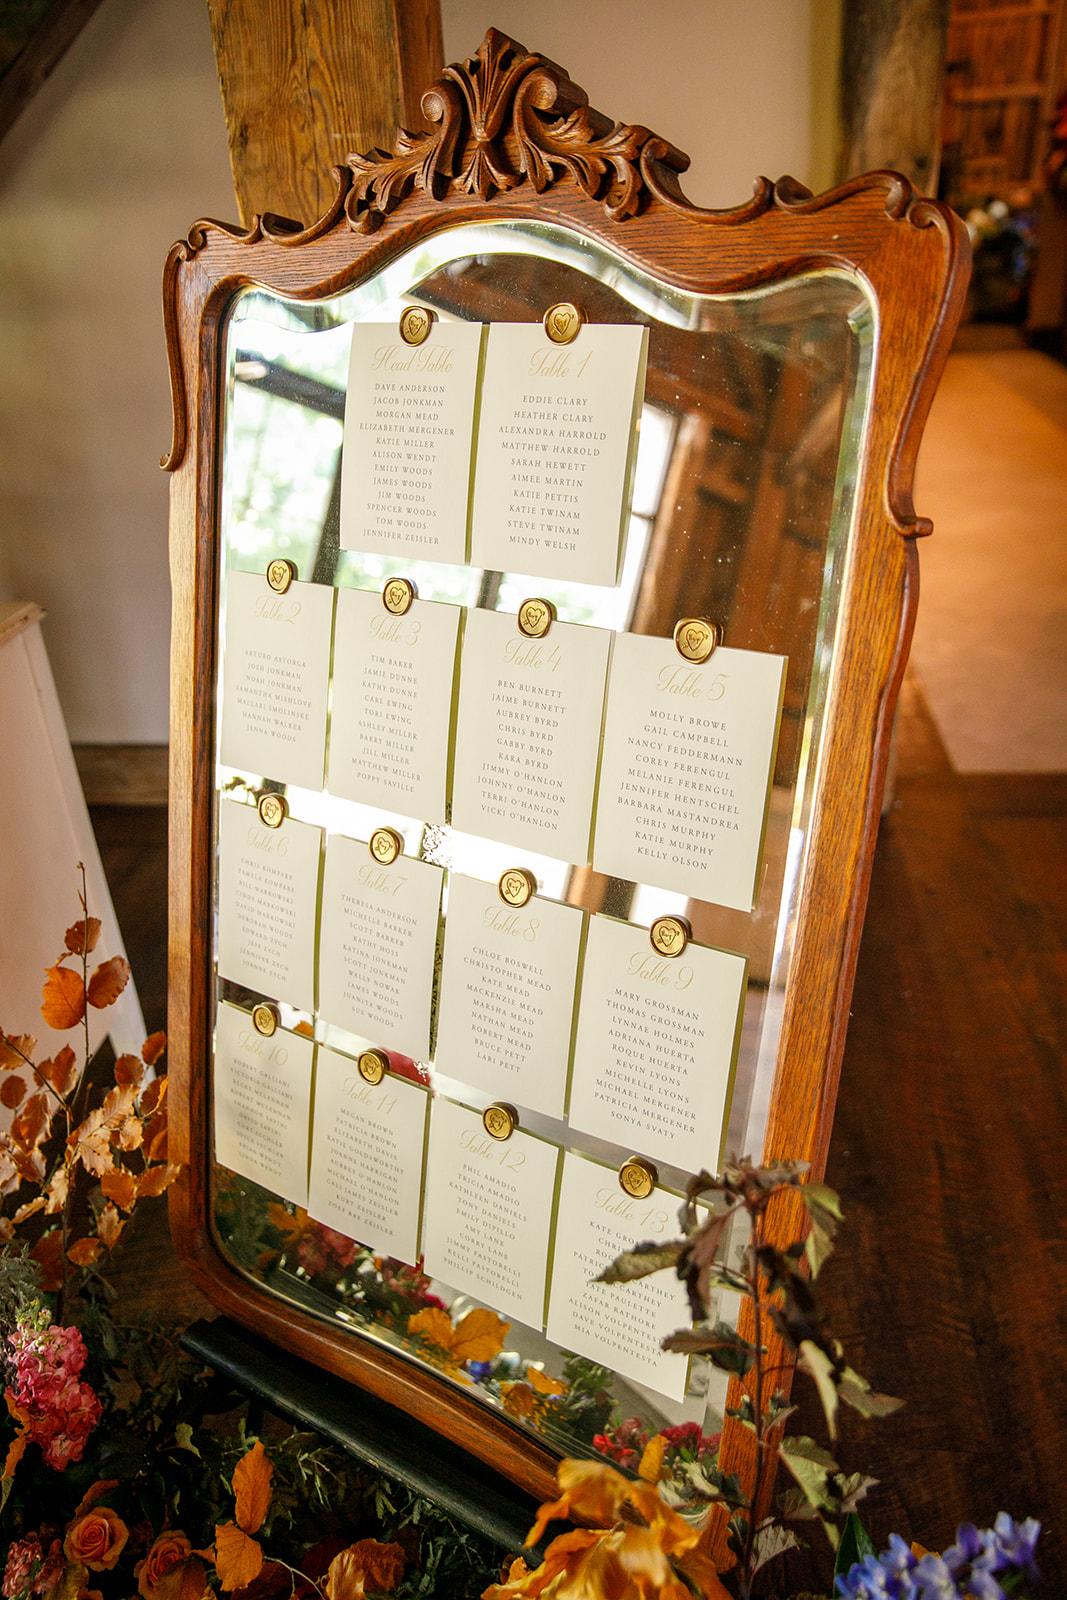 Head Table
DAVE ANDERSON
JACOB JONKMAN
MORGAN MEAD
ELIZABETH MERGENER
KATIE MILLER
ALISON WENDT
EMILY WOODS
JAMES WOODS
JIM WOODS
SPENCER WOODS
TOM WOODS
JENNIFER ZEISLER
Table 1
EDDIE CLARY
HEATHER CLARY
ALEXANDRA HARROLD
MATTHEW HARROLD
SARAH HEWETT
AIMEE MARTIN
KATIE PETTIS
KATIE TWINAM
STEVE TWINAM
MINDY WELSH
Table 2
ARTURO ASTORGA
JOSH JONKMAN
NOAH JONKMAN
SAMANTHA MISHLOVE
MALLARI SMOLINSKE
HANNAH WALKER
JENNA WOODS
Table 3
TIM BAKER
JAMIE DUNNE
KATHY DUNNE
CARL EWING
TORI EWING
ASHLEY MILLER
BARRY MILLER
JILL MILLER
MATTHEW MILLER
POPPY SAVILLE
Table 4
BEN BURNETT
JAIME BURNETT
AUBREY BYRD
CHRIS BYRD
GABBY BYRD
KARA BYRD
JIMMY O'HANLON
JOHNNY O'HANLON
TERRI O'HANLON
VICKI O'HANLON
Table 5
MOLLY BROWE
GAIL CAMPBELL
NANCY FEDDERMANN
COREY FERENGUL
MELANIE FERENGUL
JENNIFER HENTSCHEL
BARBARA MASTANDREA
CHRIS MURPHY
KATIE MURPHY
KELLY OLSON
Table 6
CHRIS KOMPARE
PAMELA KOMPARE
BILL MARKOWSKI
CINDY MARKOWSKI
DAVID MARKOWSKI
DEBORAH WOODS
EDWARD ZYCH
JEFF ZYCH
JENNIFER ZYCH
JOANNE ZYCH
Table 7
THERESA ANDERSON
MICHELLE BARKER
SCOTT BARKER
KATHY HOSS
KATINA JONKMAN
SCOTT JONKMAN
WALLY NOWAK
JAMES WOODS
JUANITA WOODS
SUE WOODS
Table 8
CHLOE BOSWELL
CHRISTOPHER MEAD
KATE MEAD
MACKENZIE MEAD
MARSHA MEAD
NATHAN MEAD
ROBERT MEAD
BRUCE PETT
LARI PETT
Table 9
MARY GROSSMAN
THOMAS GROSSMAN
LYNNAE HOLMES
ADRIANA HUERTA
ROQUE HUERTA
KEVIN LYONS
MICHELLE LYONS
MICHAEL MERGENER
PATRICIA MERGENER
SONYA SVATY
Table 10
ROBERT GALLIANI
VICTORIA GALLIANI
BECKY MCLENNAN
ROBERT MCLENNAN
SHANNON SAVINI
DAVID SAVINI
CURT SECHLER
JOYCE SECHLER
BRIAN WENDT
LINDA WENDT
Table 11
MEGAN BROWN
PATRICIA BROWN
ELIZABETH DAVIS
KATHY GOLDSWORTHY
JOANNE HARRIGAN
AUBREY O'HANLON
MICHAEL O'HANLON
CALI JAMES ZEISLER
KURT ZEISLER
ZOEY RAE ZEISLER
Table 12
PHIL AMADIO
TRICIA AMADIO
KATHLEEN DANIELS
TONY DANIELS
EMILY DIPILLO
AMY LANE
CORBY LANE
JIMMY PASTORELLI
KELLI PASTORELLI
PHILLIP SCHILDGEN
Table 13
KATE
TATE PAULETTE
ZAFAR RATHORE
ALISON VOLPENTESTA
DAVE VOLPENTESTA
MIA VOLPENTESTA